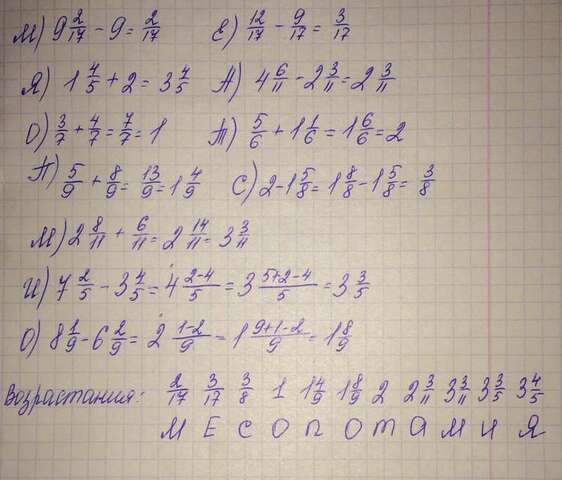 М) 9 2/17 - 9 = 2/17 Е) 12/17 - 9/17 = 3/17
Я) 1 4/5 + 2 = 3 4/5 А) 4 6/11 - 2 3/11 = 2 3/11
О) 3/7 + 4/7 = 7/7 = 1 Т) 5/6 + 1 1/6 = 1 6/6 = 2
П) 5/9 + 8/9 = 13/9 = 1 4/9 С) 2 - 1 5/8 = 1 8/8 - 1 5/8 = 3/8
М) 2 8/11 + 6/11 = 2 14/11 = 3 3/11
И) 7 2/5 - 3 4/5 = 4 2-4/5 = 3 5+2-4/5 = 3 3/5
О) 8 1/9 - 6 2/9 = 2 1-2/9 = 1 9+1-2/9 = 1 8/9
Возрастания: 2/17 3/17 3/8 1 1 4/9 1 8/9 2 2 3/11 3 3/11 3 3/5 3 4/5
М Е С О П О Т А М И Я